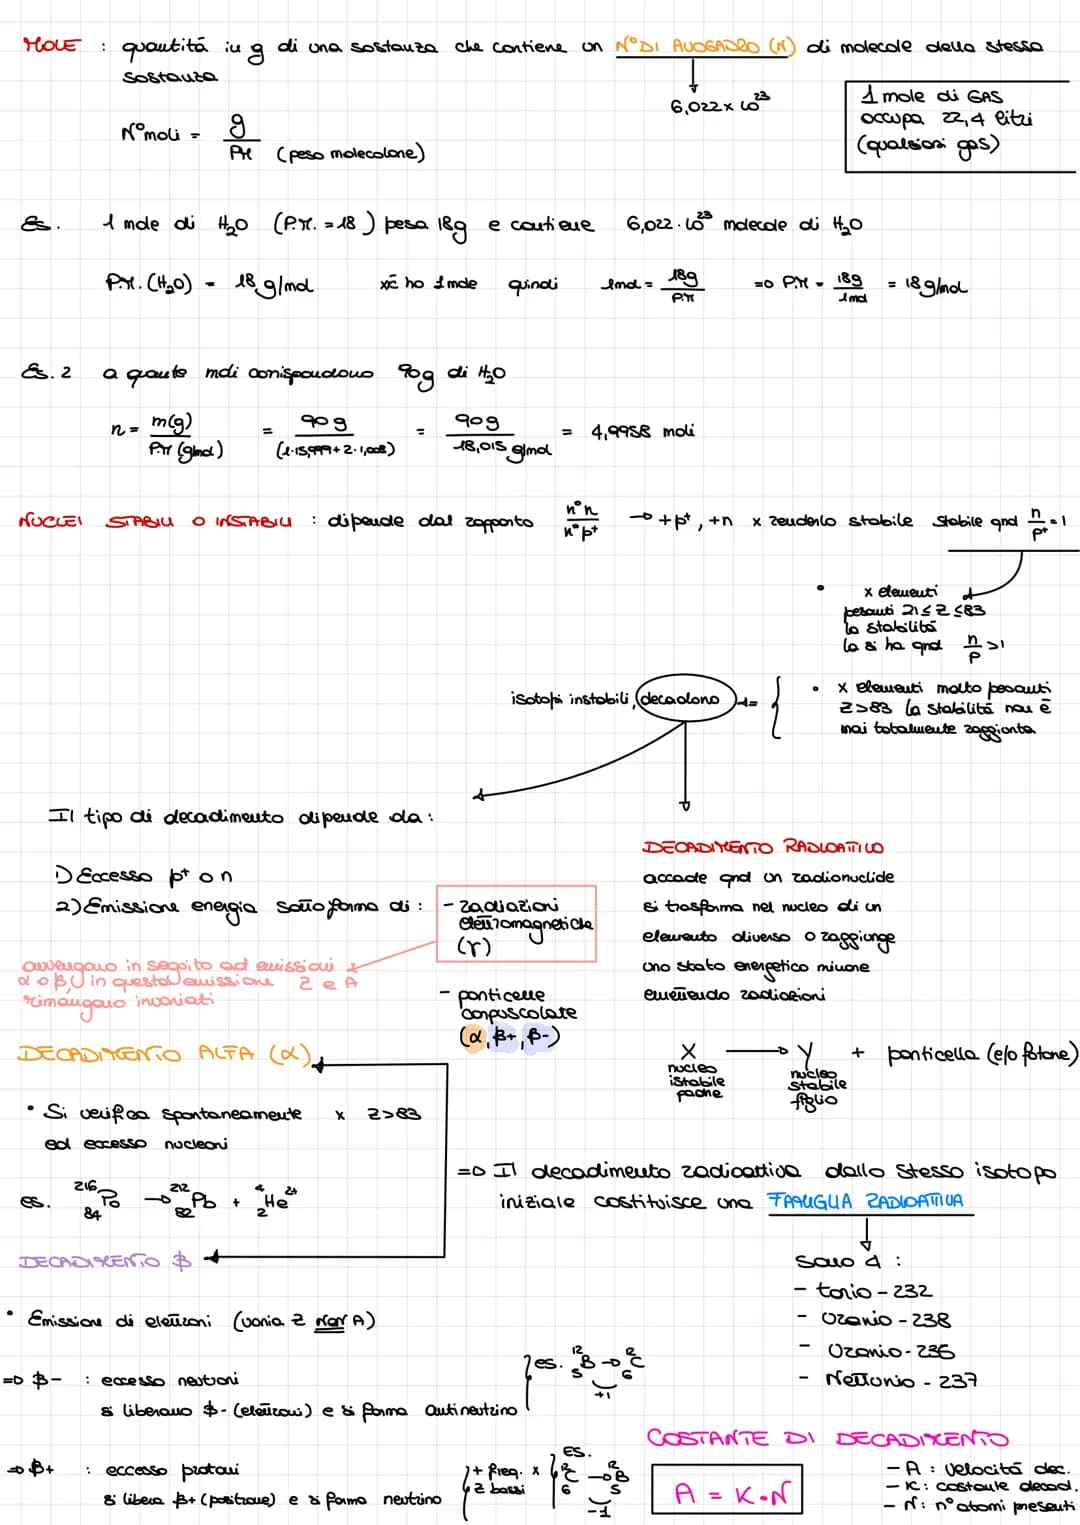 MOLE : quantità in g di una sostanza che contiene un N° DI AVOGADRO (N) di molecole della stessa
sostanza
6,022 x 10²³
1 mole di GAS
occupa 22,4 litri
(qualsiasi gas)
N° moli = g / PM (peso molecolare)
Es. 1 mole di H₂O (P.M. = 18) pesa 18g e contiene 6,022 · 10²³ molecole di H₂O
P.M. (H₂O) = 18 g/mol xč ho 1 mole quindi 1mol = 18g / PM => P.M = 18g / 1mol = 18 g/mol
Es. 2 a quante moli corrispondono 90g di H₂O
n = m(g) / P.M (g/mol) = 90 g / (1·15,999 + 2·1,008) = 90 g / 18,015 g/mol = 4,9958 moli
NUCLEI STABILI O INSTABILI : dipende dal rapporto n°n / n°p⁺ → +p⁺, +n x renderlo stabile stabile qnd n / p⁺ = 1
• x elementi
pesanti 21 ≤ Z ≤ 83
la stabilità
la si ha qnd n / p > 1
isotopi instabili, decadono
• x elementi molto pesanti
Z > 83 la stabilità non è
mai totalmente raggiunta
Il tipo di decadimento dipende da :
1) Eccesso p⁺ o n
2) Emissione energia sotto forma di :
- radiazioni
elettromagnetiche
(γ)
avvengono in seguito ad emissioni
α o β, in questa emissione Z e A
rimangono invariati
- particelle
corpuscolate
(α, β+, β-)
DECADIMENTO RADIOATTIVO
accade qnd un radionuclide
si trasforma nel nucleo di un
elemento diverso o raggiunge
uno stato energetico minore
emettendo radiazioni
X → Y + particella (e/o fotone)
nucleo
istabile
padre
nucleo
stabile
figlio
DECADIMENTO ALFA (α)
• Si verifica spontaneamente x Z > 83
ed eccesso nucleoni
es. ²¹⁶₈₄Po → ²¹²₈₂Pb + ⁴₂He²⁺
=> Il decadimento radioattivo dallo stesso isotopo
iniziale costituisce una FAMIGLIA RADIOATTIVA
Sono 4 :
- torio - 232
- Uranio - 238
- Uranio - 235
- Nettunio - 237
DECADIMENTO β
• Emissione di elettroni (varia Z Non A)
=> β- : eccesso neutroni
si liberano β- (elettroni) e si forma antineutrino
es. ¹²₅B → ¹²₆C
+1
=> β+ : eccesso protoni
si libera β+ (positrone) e si forma neutrino
+ freq. x
Z bassi
es.
¹²₆C → ¹²₅B
-1
COSTANTE DI DECADIMENTO
A = K · N
- A : velocità dec.
- K : costante decad.
- N : n° atomi presenti